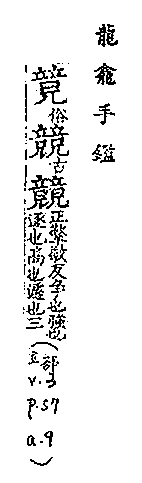 龍龕手鑑
竟俗竸古競正渠敬反争也強也
逐也高也遽也三
(立部
v.3
p.57
a.9)